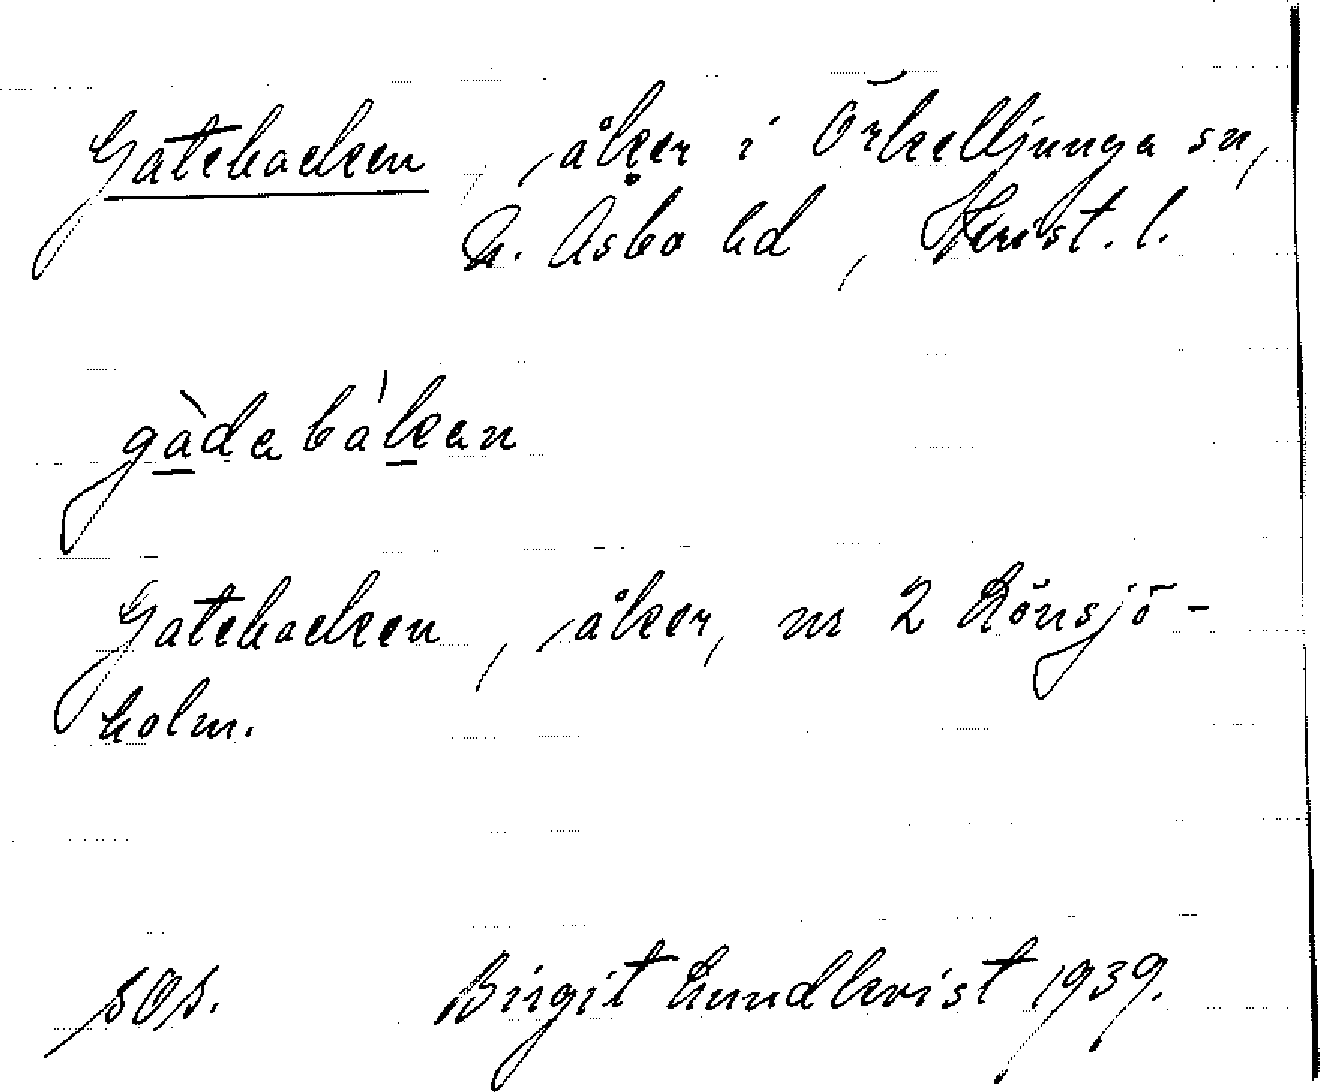 Gatebacken, åker i Örkelljunga sn,
N. Åsbo hd, Krist. l.
gàdabàkan
Gatebacken, åker, nr 2 Rönsjö-
holm.
sOs. Birgit Lundkvist 1939.